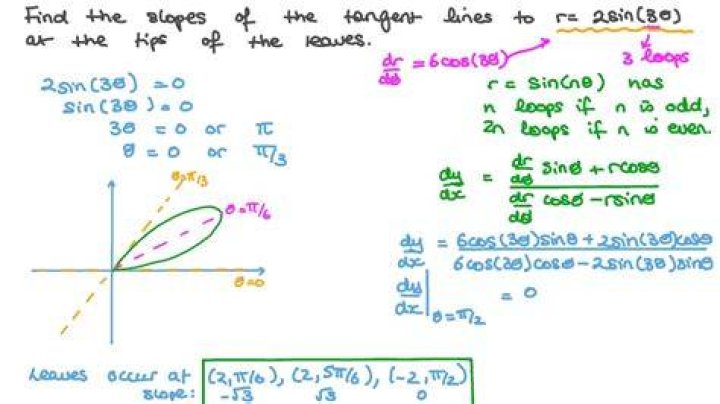 Find the slopes of the tangent lines to r = 2sin(3θ)
at the tips of the leaves.
dr/dθ = 6cos(3θ)
3 loops
2sin(3θ) = 0
sin(3θ) = 0
3θ = 0 or π
θ = 0 or π/3
r = sin(nθ) has
n loops if n is odd,
2n loops if n is even.
θ=π/3
θ=π/6
θ=0
dy/dx = (dr/dθ sinθ + rcosθ)/(dr/dθ cosθ - rsinθ)
dy/dx = (6cos(3θ)sinθ + 2sin(3θ)cosθ)/(6cos(3θ)cosθ - 2sin(3θ)sinθ)
dy/dx | θ=π/2 = 0
Leaves occur at (2, π/6), (2, 5π/6), (-2, π/2)
slope: -√3 √3 0